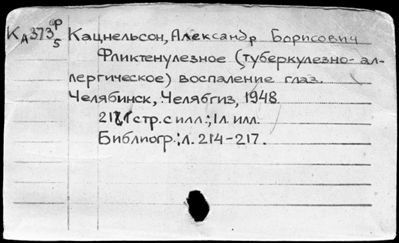 КА373 Ф/5 Кацнельсон, Александр Борисович
Фликтенулезное (туберкулезно-ал-
лергическое) воспаление глаз.
Челябинск, Челябгиз, 1948.
стр. с илл.; 1л. илл.
Библиогр.: л. 214-217.